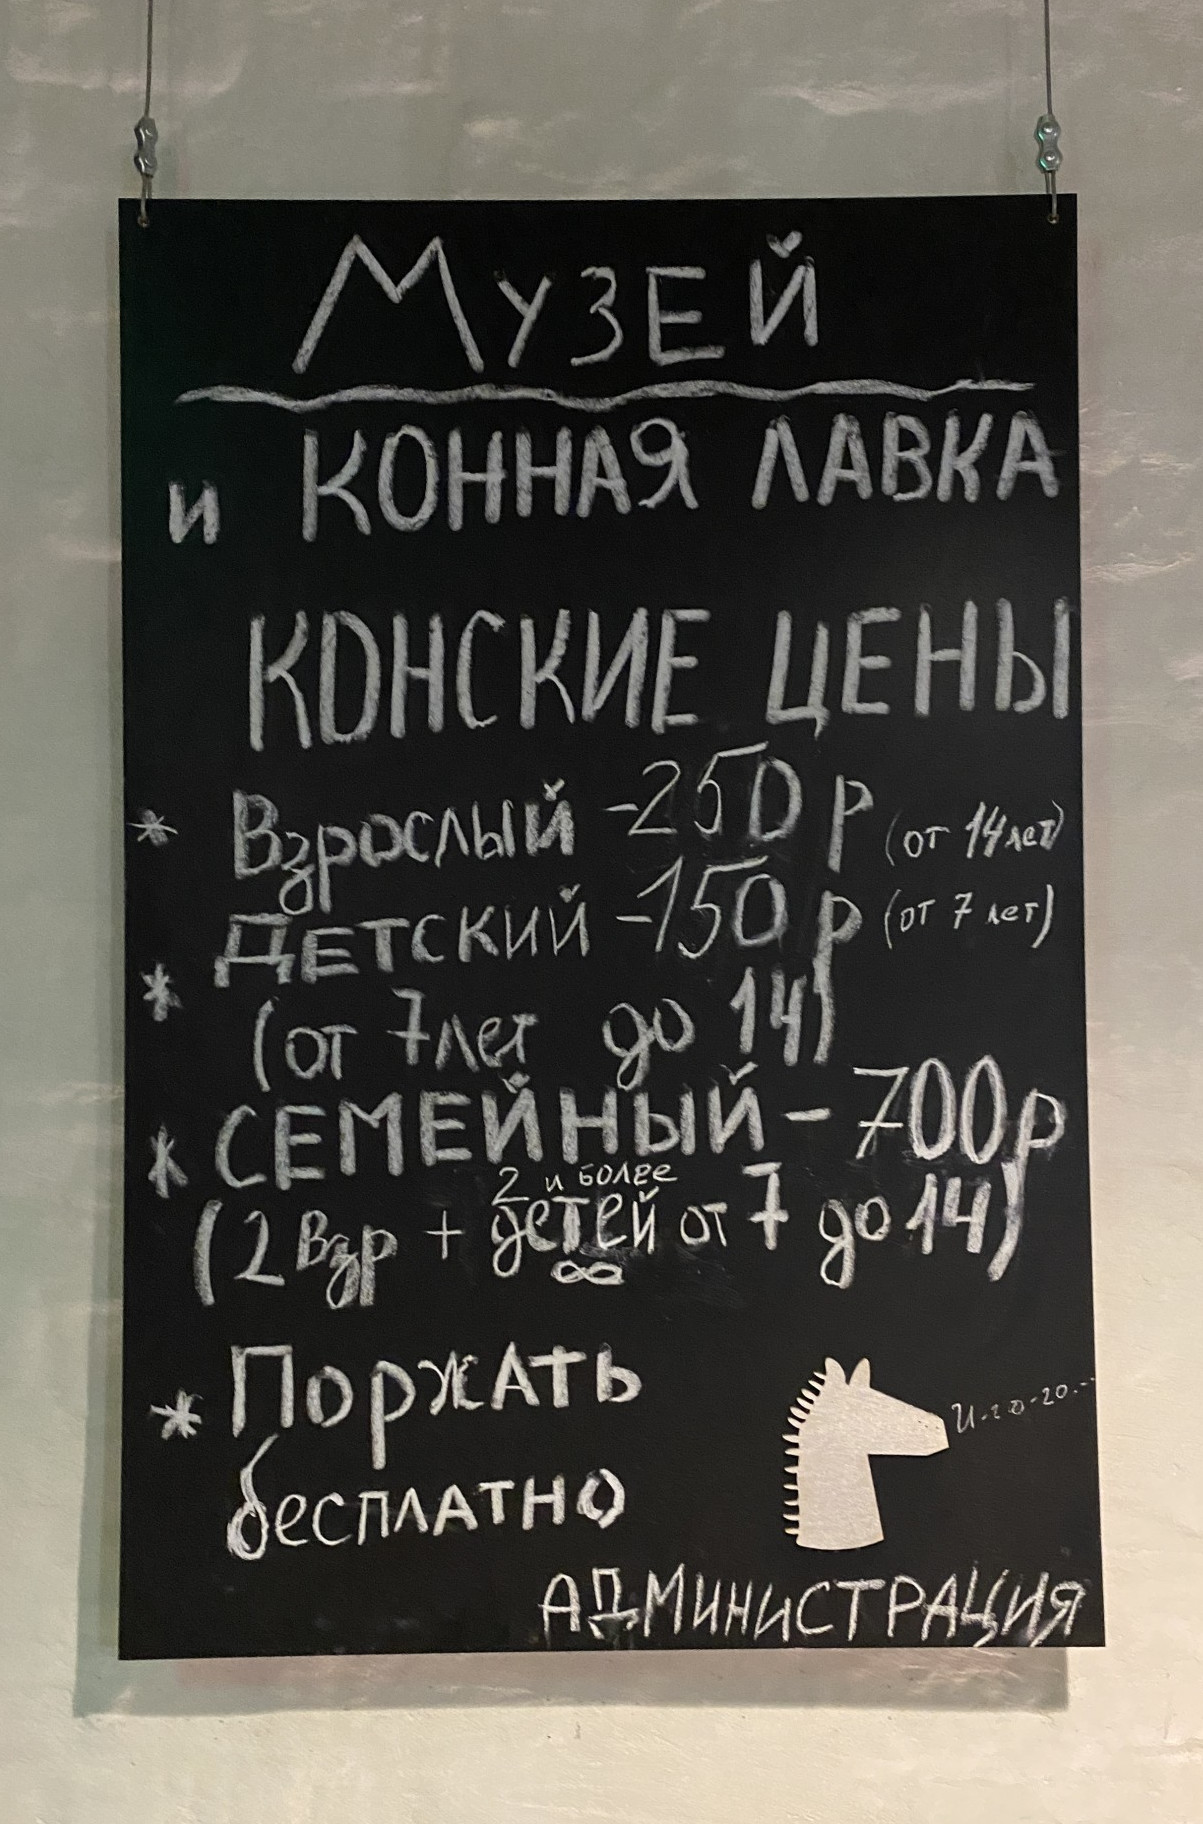 Музей
и КОННАЯ ЛАВКА
КОНСКИЕ ЦЕНЫ
* Взрослый -250 р (от 14 лет)
* Детский -150 р (от 7 лет)
(от 7 лет до 14)
* СЕМЕЙНЫЙ - 700р
2 и более
(2 взр + детей от 7 до 14)
∞
* Поржать
бесплатно
И-го-го...
АДМИНИСТРАЦИЯ